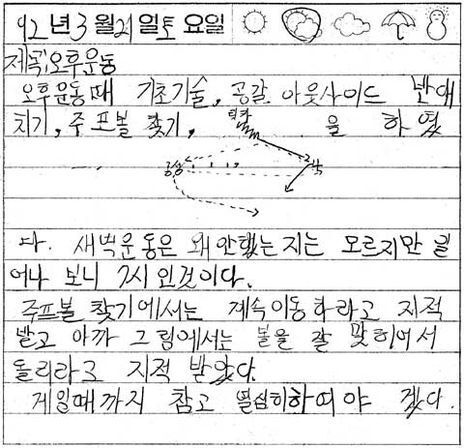 92년 3월 21일 토요일
제목:오후운동
오후운동때 기초기술, 공갈, 아웃사이드 반대
치기, 주프볼 찾기, 을 하였
다. 새벽운동은 왜안했는지는 모르지만 일
어나 보니 7시 인것이다.
주프볼 찾기에서는 계속이동하라고 지적
받고 아까 그림에서는 볼을 잘 맞히어서
돌리라고 지적 받았다.
게임때까지 참고 열심히하여야 겠다.